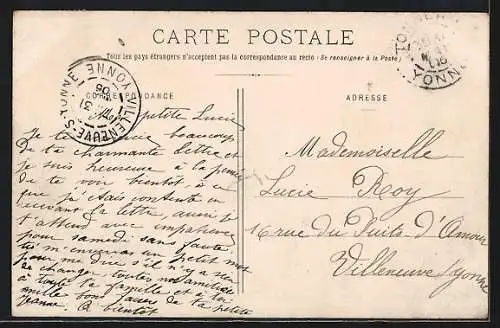 CARTE POSTALE
Tous les pays étrangers n'acceptent pas la correspondance au recto (Se renseigner à la Poste)
CORRESPONDANCE
ADRESSE
VILLENEUVE-S-YONNE
31
05
YONNE
petite Lucie
Je te remercie beaucoup
De ta charmante lettre et
je suis heureuse à la pensée
de te voir bientôt, à ce
que je étais contente en
recevant ta lettre, aussi je
t'attend avec impatience
pour samedi sans faute
tu m'enverras un petit mot
pour me dire s'il n'y a rien
de changer, toutes nos amitiés
à toute ta famille et à toi
mille bons baisers de ta petite
Jeanne. A bientôt
Mademoiselle
Lucie Roy
16 rue du Puits d'Amour
Villeneuve s/yonne